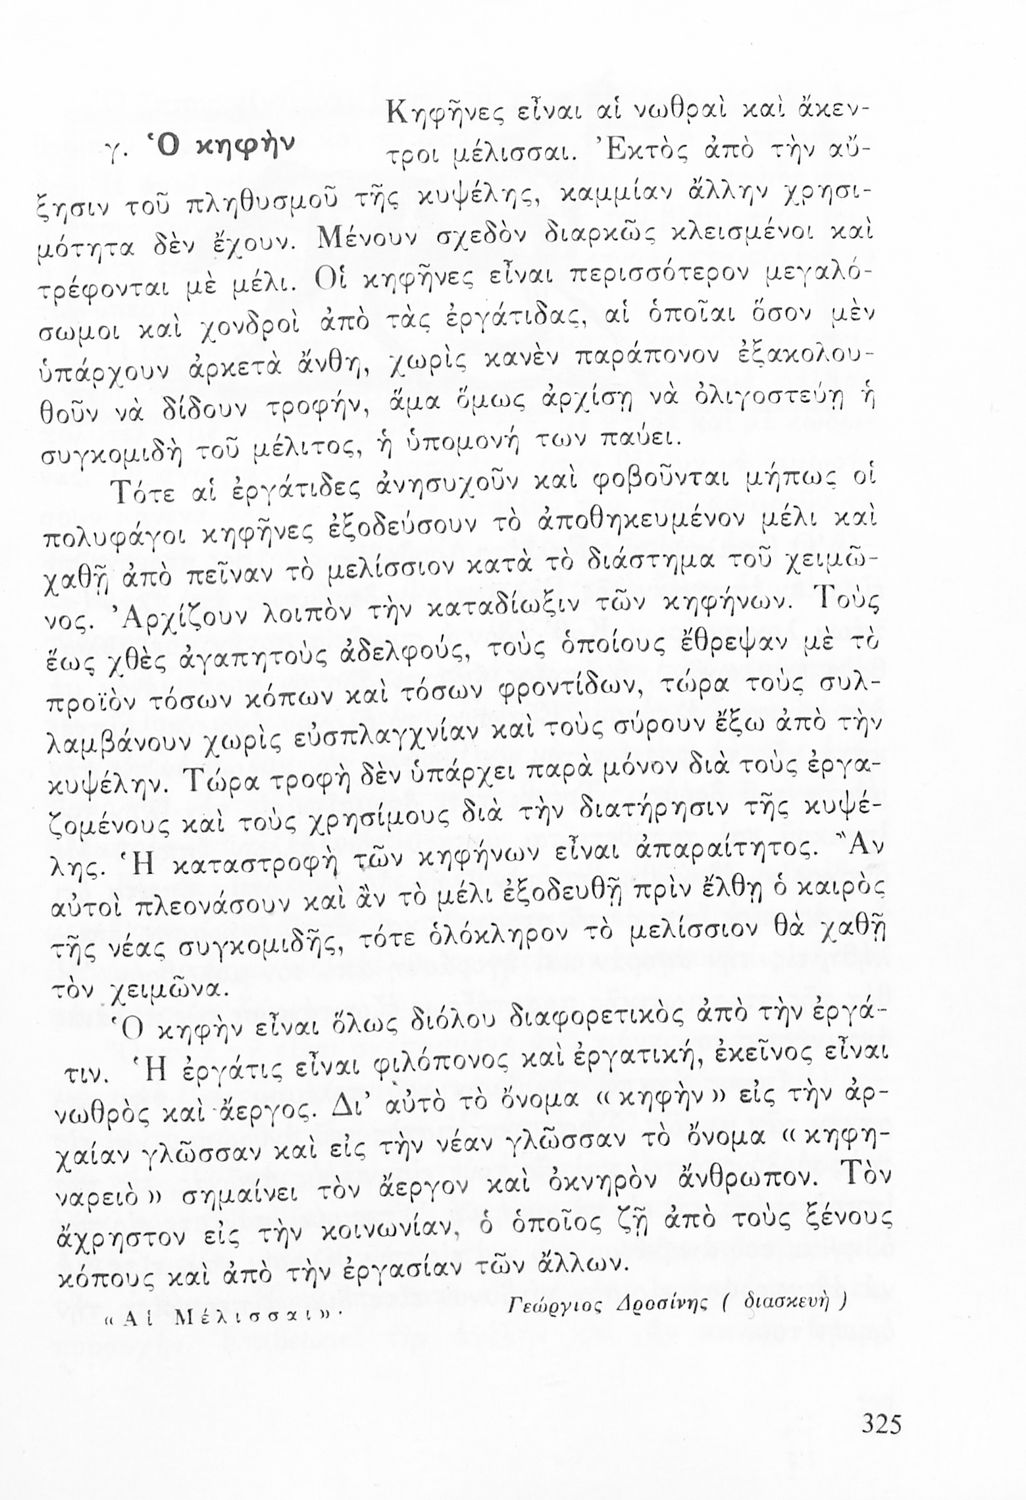 γ. Ὁ κηφὴν
Κηφῆνες εἶναι αἱ νωθραὶ καὶ ἄκεν-
τροι μέλισσαι. Ἐκτὸς ἀπὸ τὴν αὔ-
ξησιν τοῦ πληθυσμοῦ τῆς κυψέλης, καμμίαν ἄλλην χρησι-
μότητα δὲν ἔχουν. Μένουν σχεδὸν διαρκῶς κλεισμένοι καὶ
τρέφονται μὲ μέλι. Οἱ κηφῆνες εἶναι περισσότερον μεγαλό-
σωμοι καὶ χονδροὶ ἀπὸ τὰς ἐργάτιδας, αἱ ὁποῖαι ὅσον μὲν
ὑπάρχουν ἀρκετὰ ἄνθη, χωρὶς κανὲν παράπονον ἐξακολου-
θοῦν νὰ δίδουν τροφήν, ἅμα ὅμως ἀρχίσῃ νὰ ὀλιγοστεύῃ ἡ
συγκομιδὴ τοῦ μέλιτος, ἡ ὑπομονή των παύει.
Τότε αἱ ἐργάτιδες ἀνησυχοῦν καὶ φοβοῦνται μήπως οἱ
πολυφάγοι κηφῆνες ἐξοδεύσουν τὸ ἀποθηκευμένον μέλι καὶ
χαθῇ ἀπὸ πεῖναν τὸ μελίσσιον κατὰ τὸ διάστημα τοῦ χειμῶ-
νος. Ἀρχίζουν λοιπὸν τὴν καταδίωξιν τῶν κηφήνων. Τοὺς
ἕως χθὲς ἀγαπητοὺς ἀδελφούς, τοὺς ὁποίους ἔθρεψαν μὲ τὸ
προϊὸν τόσων κόπων καὶ τόσων φροντίδων, τώρα τοὺς συλ-
λαμβάνουν χωρὶς εὐσπλαγχνίαν καὶ τοὺς σύρουν ἔξω ἀπὸ τὴν
κυψέλην. Τώρα τροφὴ δὲν ὑπάρχει παρὰ μόνον διὰ τοὺς ἐργα-
ζομένους καὶ τοὺς χρησίμους διὰ τὴν διατήρησιν τῆς κυψέ-
λης. Ἡ καταστροφὴ τῶν κηφήνων εἶναι ἀπαραίτητος. Ἂν
αὐτοὶ πλεονάσουν καὶ ἂν τὸ μέλι ἐξοδευθῇ πρὶν ἔλθῃ ὁ καιρὸς
τῆς νέας συγκομιδῆς, τότε ὁλόκληρον τὸ μελίσσιον θὰ χαθῇ
τὸν χειμῶνα.
Ὁ κηφὴν εἶναι ὅλως διόλου διαφορετικὸς ἀπὸ τὴν ἐργά-
τιν. Ἡ ἐργάτις εἶναι φιλόπονος καὶ ἐργατική, ἐκεῖνος εἶναι
νωθρὸς καὶ ἄεργος. Δι’ αὐτὸ τὸ ὄνομα «κηφὴν» εἰς τὴν ἀρ-
χαίαν γλῶσσαν καὶ εἰς τὴν νέαν γλῶσσαν τὸ ὄνομα «κηφη-
ναρειὸ» σημαίνει τὸν ἄεργον καὶ ὀκνηρὸν ἄνθρωπον. Τὸν
ἄχρηστον εἰς τὴν κοινωνίαν, ὁ ὁποῖος ζῇ ἀπὸ τοὺς ξένους
κόπους καὶ ἀπὸ τὴν ἐργασίαν τῶν ἄλλων.
«Αἱ Μέλισσαι»· Γεώργιος Δροσίνης ( διασκευὴ )
325